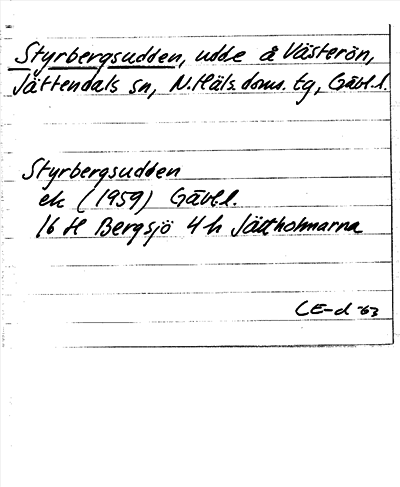 Styrbergsudden, udde å Västerön,
Jättendals sn, N. Häls. doms. tg, Gävl.l.
Styrbergsudden
ek (1959) Gävl.l.
16 H Bergsjö 4 h Jättholmarna
CE-d -63